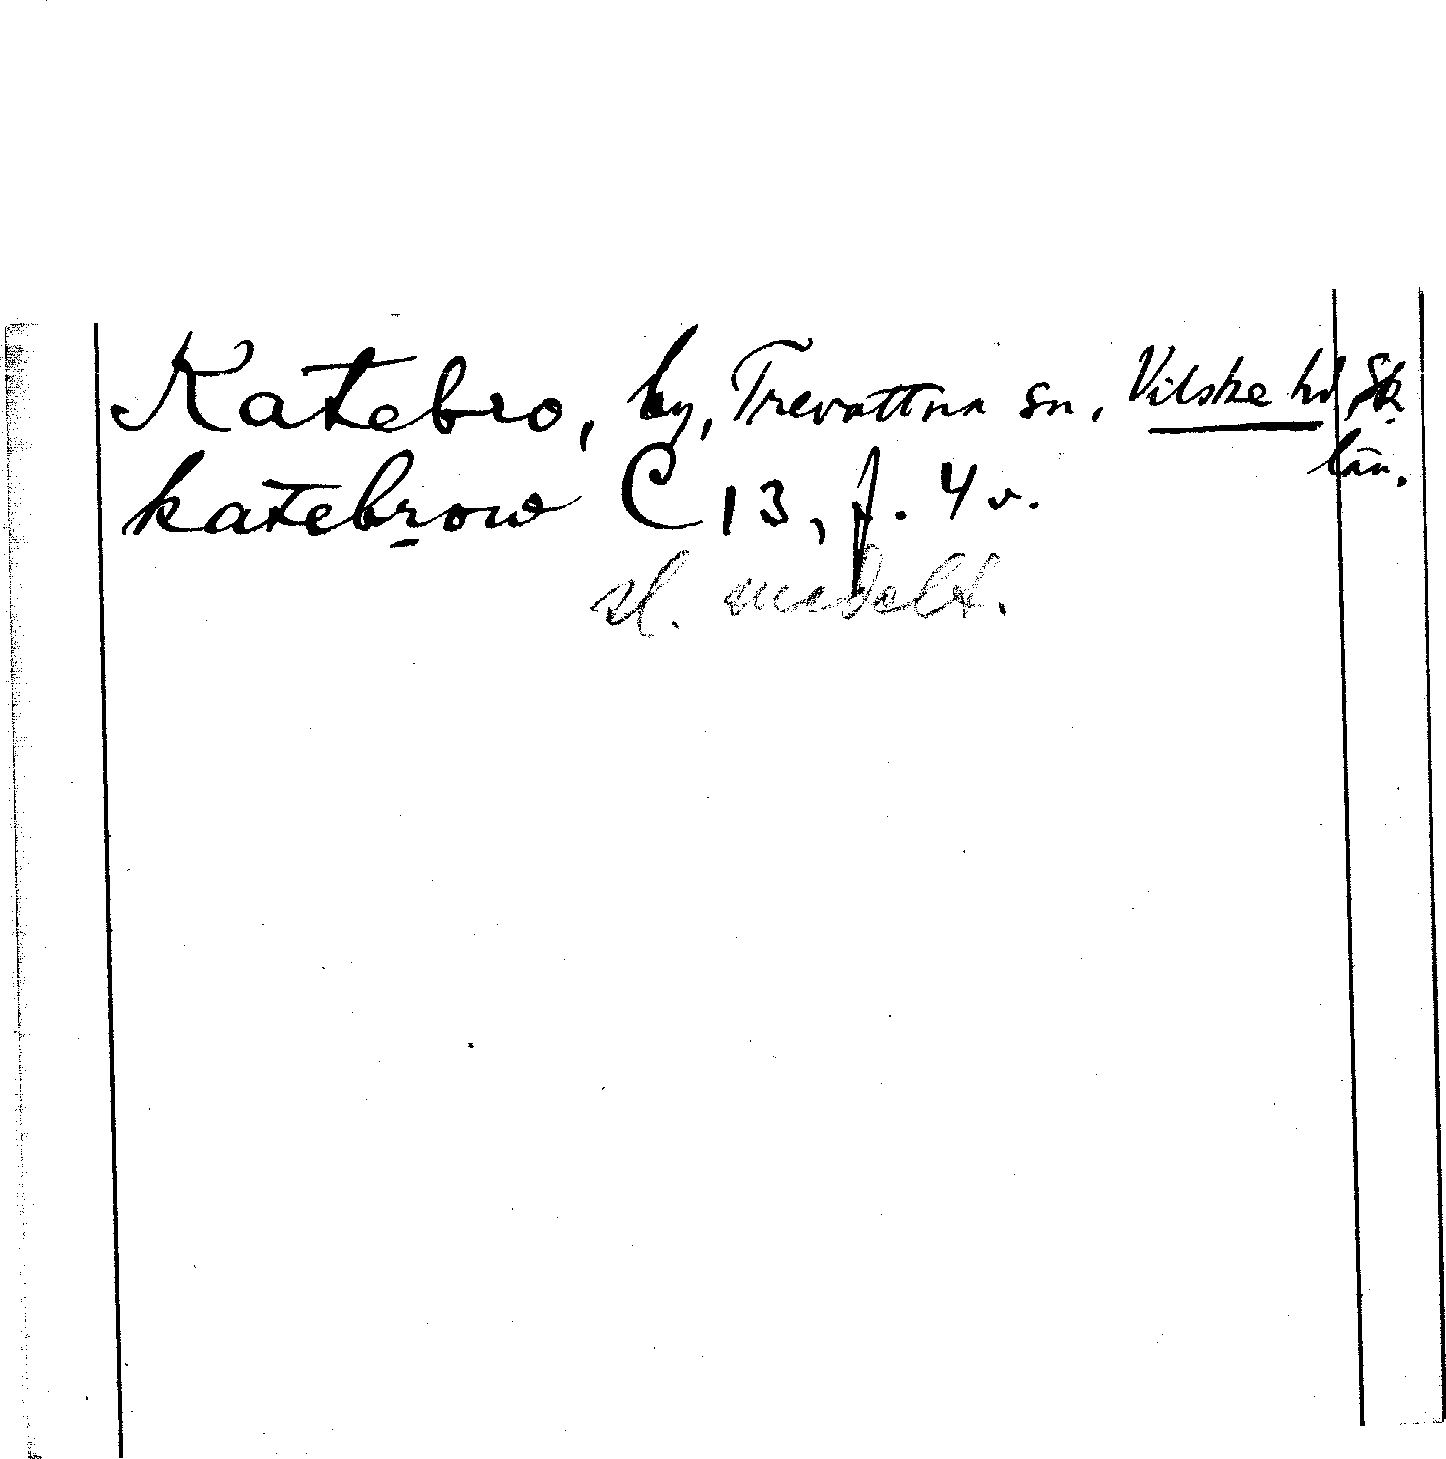 Katebro, by, Trevattna sn, Vilske hd, Sk.
län.
katebrow C 13, f. 4 v.
sl. medelt.